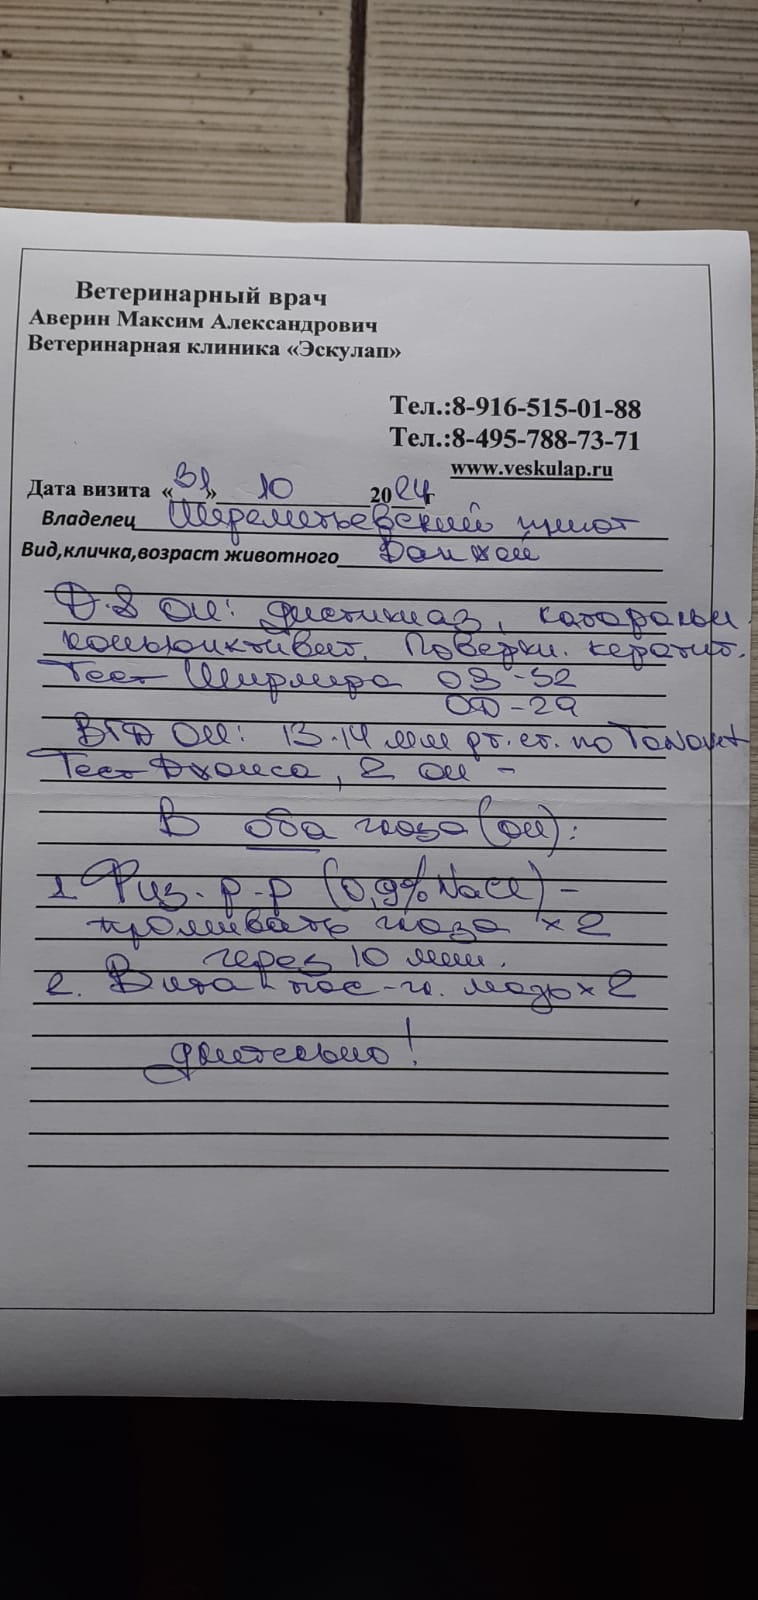 Ветеринарный врач
Аверин Максим Александрович
Ветеринарная клиника «Эскулап»
Тел.:8-916-515-01-88
Тел.:8-495-788-73-71
www.veskulap.ru
Дата визита «31» 10 2024г
Владелец Шереметьевский приют
Вид,кличка,возраст животного
D.S OU: дистихиаз, катаральн.
конъюнктивит. Поверхн. кератит.
Тест Ширмера OS-32
OD-29
ВГД OU: 13-14 мм рт. ст. по TonoVet
Тест Джонса 1, 2 OU -
В оба глаза (OU):
1. Физ. р-р (0,9% NaCl) -
промывать глаза x 2
через 10 мин.
2. Вита-пос гл. мазь x 2
длительно!